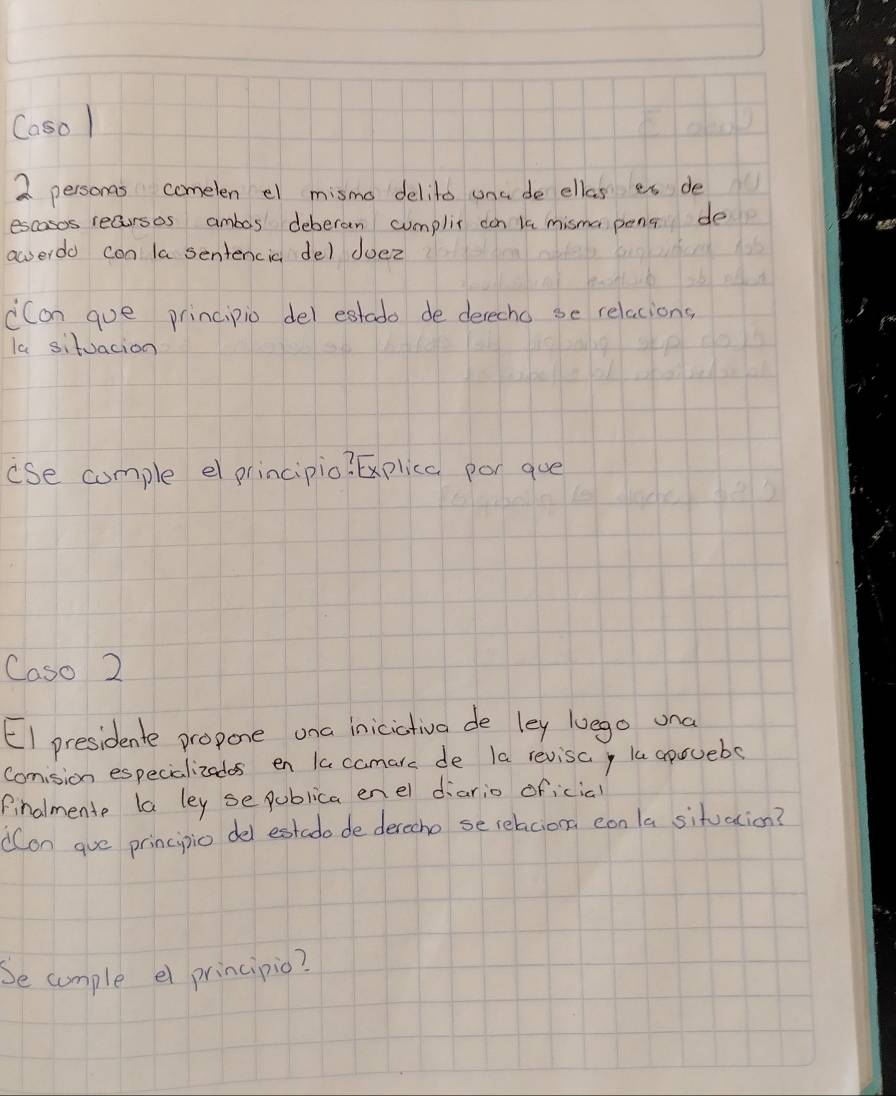 Caso 1
2 personas cometen el mismo delito una de ellas es de
escasos recursos ambas deberan cumplir con la misma pena de
acuerdo con la sentencia del Juez
¿Con que principio del estado de derecho se relaciona
la situacion
¿Se cumple el principio? Explica por que
Caso 2
El presidente propone una iniciativa de ley luego una
comision especializados en la camara de la revisa y la aprueba
finalmente la ley se publica en el diario oficial
¿Con que principio del estado de derecho se relaciona con la situacion?
Se cumple el principio?